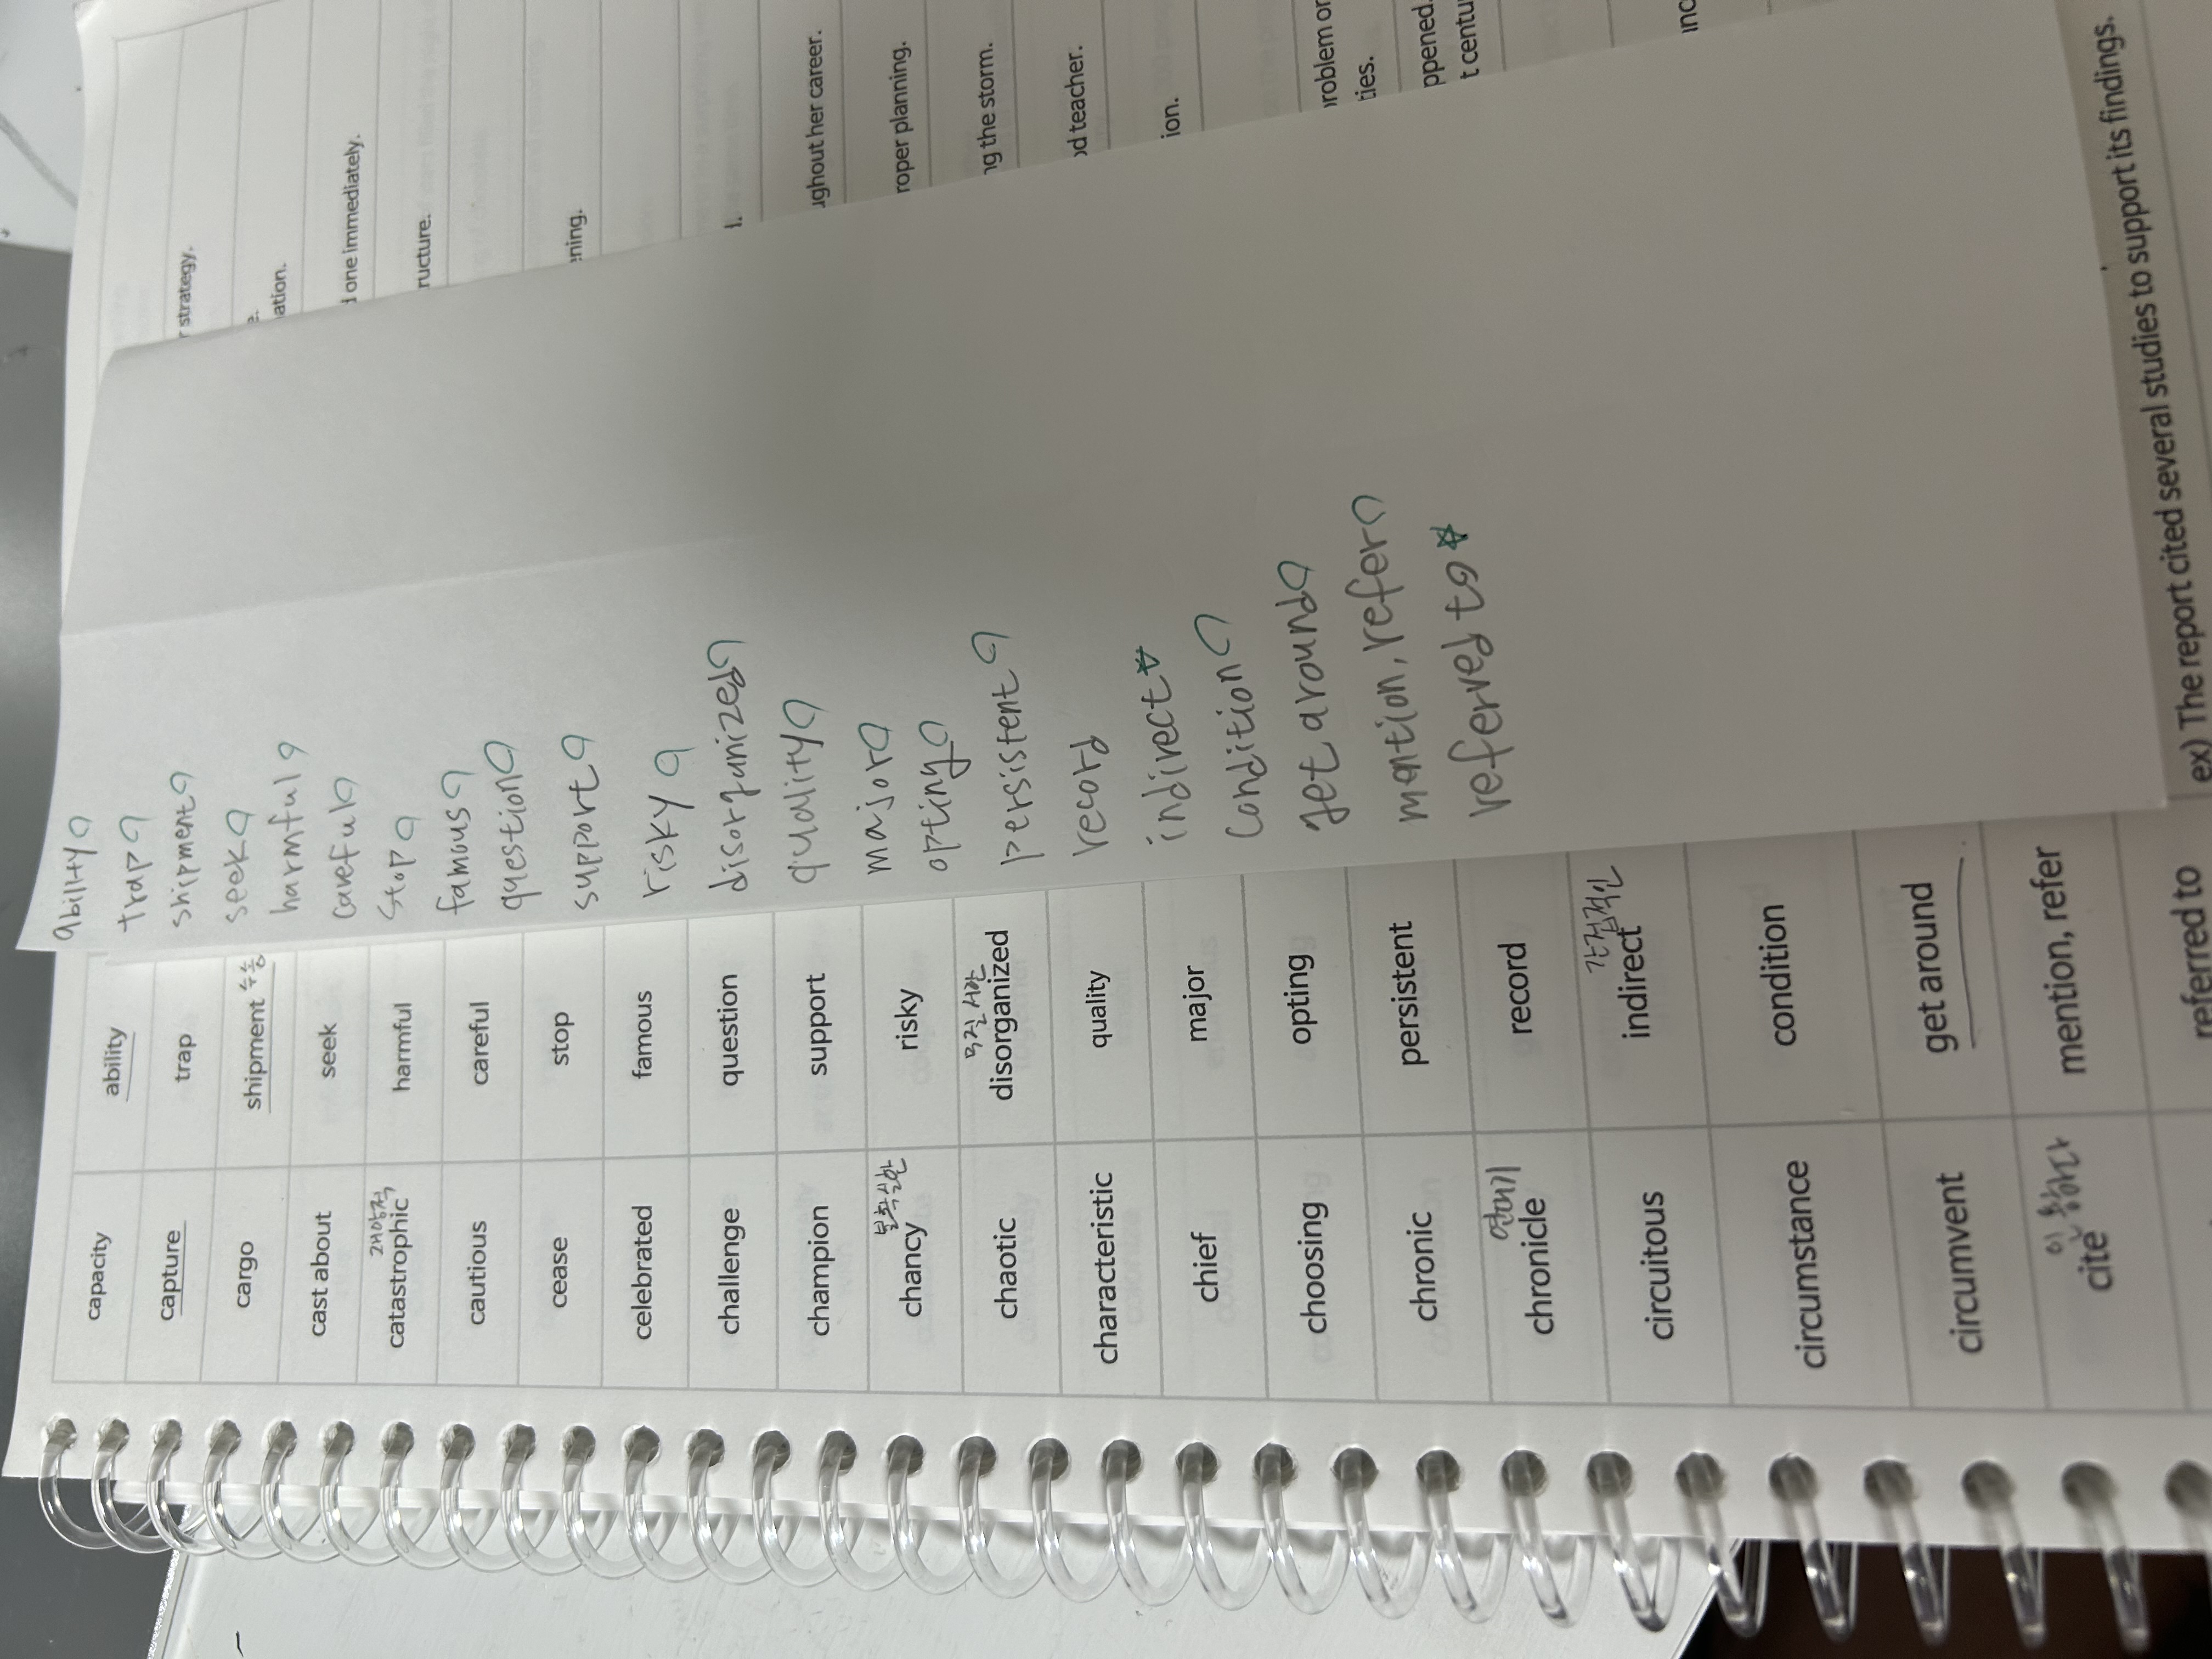 capacity ability
capture trap
cargo shipment 수송
cast about seek
재앙적
catastrophic harmful
cautious careful
cease stop
celebrated famous
challenge question
champion support
불확실한
chancy risky
무질서한
chaotic disorganized
characteristic quality
chief major
choosing opting
chronic persistent
연대기
chronicle record
간접적인
circuitous indirect
circumstance condition
circumvent get around
인용하다
cite mention, refer
referred to
ability
trap
shipment
seek
harmful
careful
stop
famous
question
support
risky
disorganized
quality
major
opting
persistent
record
indirect
condition
get around
mention, refer
referred to
strategy.
one immediately.
ughout her career.
roper planning.
ng the storm.
od teacher.
roblem or
ties.
ppened.
t centu
ex) The report cited several studies to support its findings.